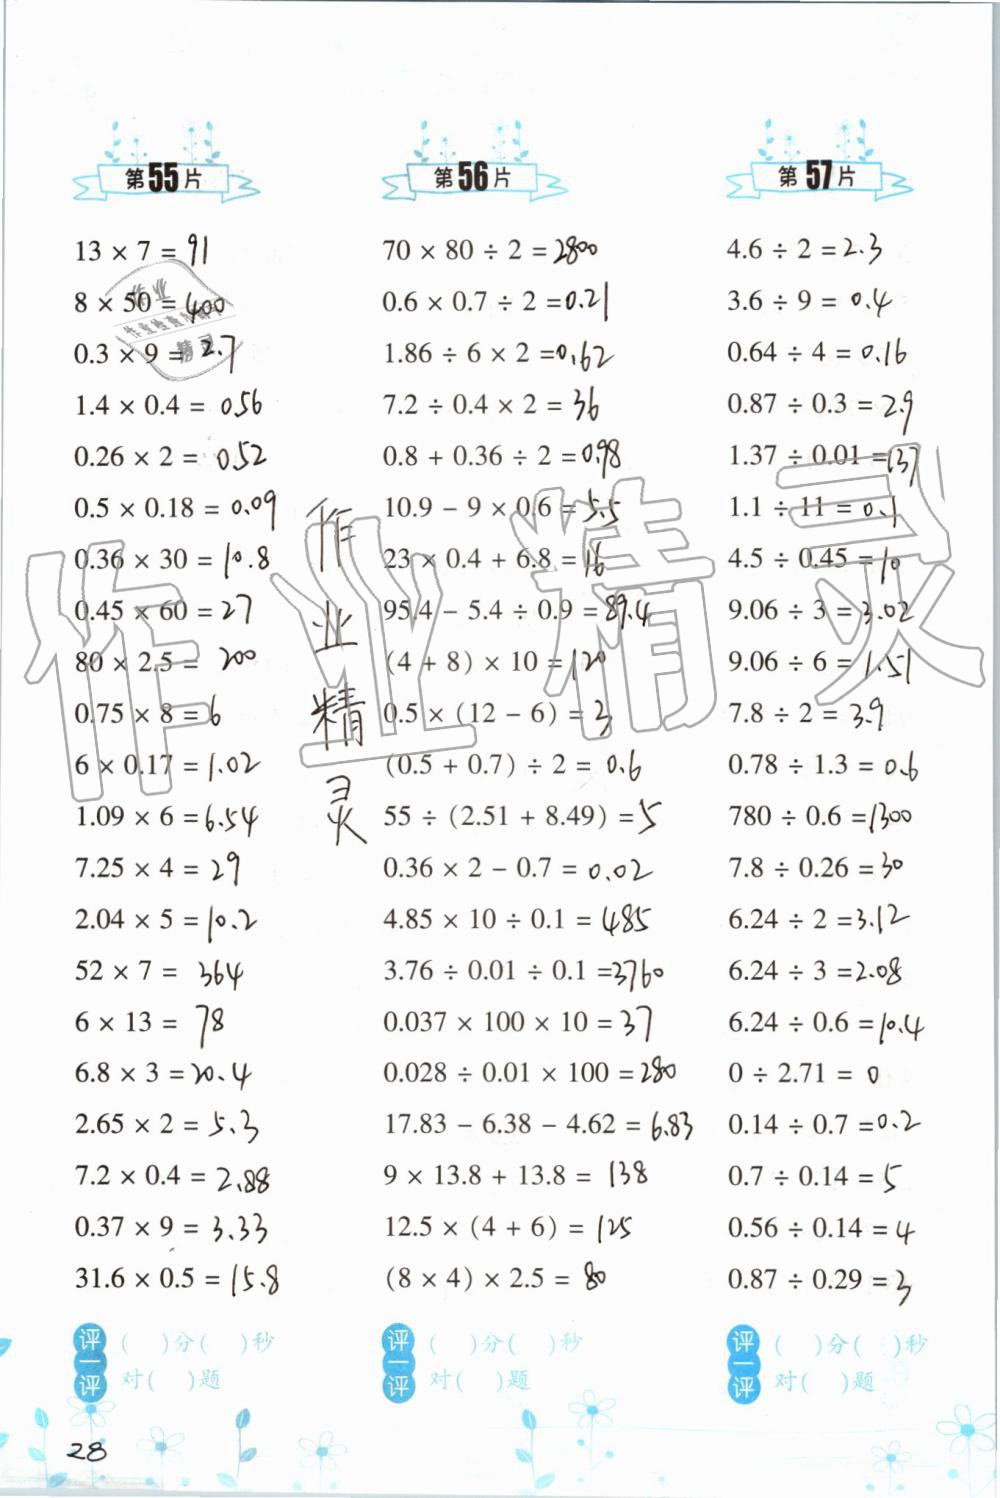 第55片
13 × 7 = 91
8 × 50 = 400
0.3 × 9 = 2.7
1.4 × 0.4 = 056
0.26 × 2 = 052
0.5 × 0.18 = 0.09
0.36 × 30 = 10.8
0.45 × 60 = 27
80 × 2.5 = 200
0.75 × 8 = 6
6 × 0.17 = 1.02
1.09 × 6 = 6.54
7.25 × 4 = 29
2.04 × 5 = 10.2
52 × 7 = 364
6 × 13 = 78
6.8 × 3 = 20.4
2.65 × 2 = 5.3
7.2 × 0.4 = 2.88
0.37 × 9 = 3.33
31.6 × 0.5 = 15.8
评一评
( )分( )秒
对( )题
第56片
70 × 80 ÷ 2 = 2800
0.6 × 0.7 ÷ 2 = 0.21
1.86 ÷ 6 × 2 = 0.62
7.2 ÷ 0.4 × 2 = 36
0.8 + 0.36 ÷ 2 = 0.98
10.9 − 9 × 0.6 = 5.5
23 × 0.4 + 6.8 = 16
95.4 − 5.4 ÷ 0.9 = 89.4
(4 + 8) × 10 = 120
0.5 × (12 − 6) = 3
(0.5 + 0.7) ÷ 2 = 0.6
55 ÷ (2.51 + 8.49) = 5
0.36 × 2 − 0.7 = 0.02
4.85 × 10 ÷ 0.1 = 485
3.76 ÷ 0.01 ÷ 0.1 = 3760
0.037 × 100 × 10 = 37
0.028 ÷ 0.01 × 100 = 280
17.83 − 6.38 − 4.62 = 6.83
9 × 13.8 + 13.8 = 138
12.5 × (4 + 6) = 125
(8 × 4) × 2.5 = 80
评一评
( )分( )秒
对( )题
第57片
4.6 ÷ 2 = 2.3
3.6 ÷ 9 = 0.4
0.64 ÷ 4 = 0.16
0.87 ÷ 0.3 = 2.9
1.37 ÷ 0.01 = 137
1.1 ÷ 11 = 0.1
4.5 ÷ 0.45 = 10
9.06 ÷ 3 = 3.02
9.06 ÷ 6 = 1.51
7.8 ÷ 2 = 3.9
0.78 ÷ 1.3 = 0.6
780 ÷ 0.6 = 1300
7.8 ÷ 0.26 = 30
6.24 ÷ 2 = 3.12
6.24 ÷ 3 = 2.08
6.24 ÷ 0.6 = 10.4
0 ÷ 2.71 = 0
0.14 ÷ 0.7 = 0.2
0.7 ÷ 0.14 = 5
0.56 ÷ 0.14 = 4
0.87 ÷ 0.29 = 3
评一评
( )分( )秒
对( )题
作业精灵
作业精灵
作业
精灵
28